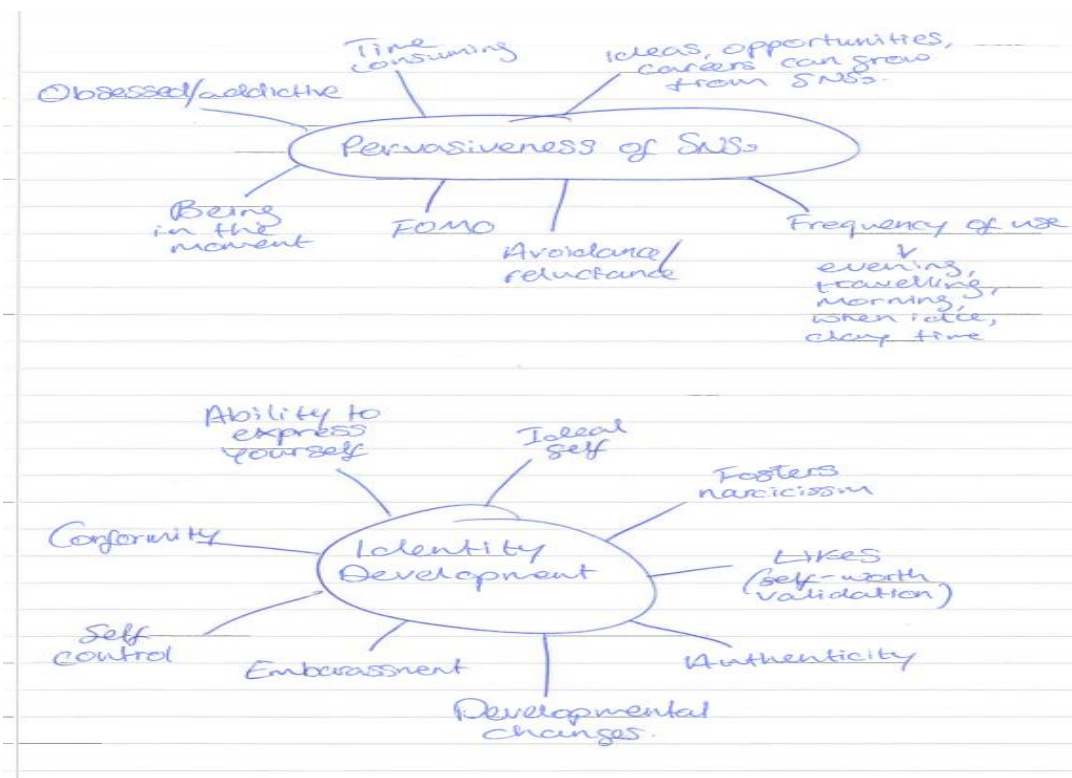 Time
consuming
Ideas, opportunities,
careers can grow
from SNSs.
Obsessed/addictive
Pervasiveness of SNSs
Being
in the
moment
FOMO
Avoidance/
reluctance
Frequency of use
evening,
travelling,
morning,
when idle,
day time
Ability to
express
yourself
Ideal
self
Fosters
narcicissm
Conformity
Identity
Development
Likes
(self-worth
validation)
Self
control
Embarassment
Authenticity
Developmental
changes.